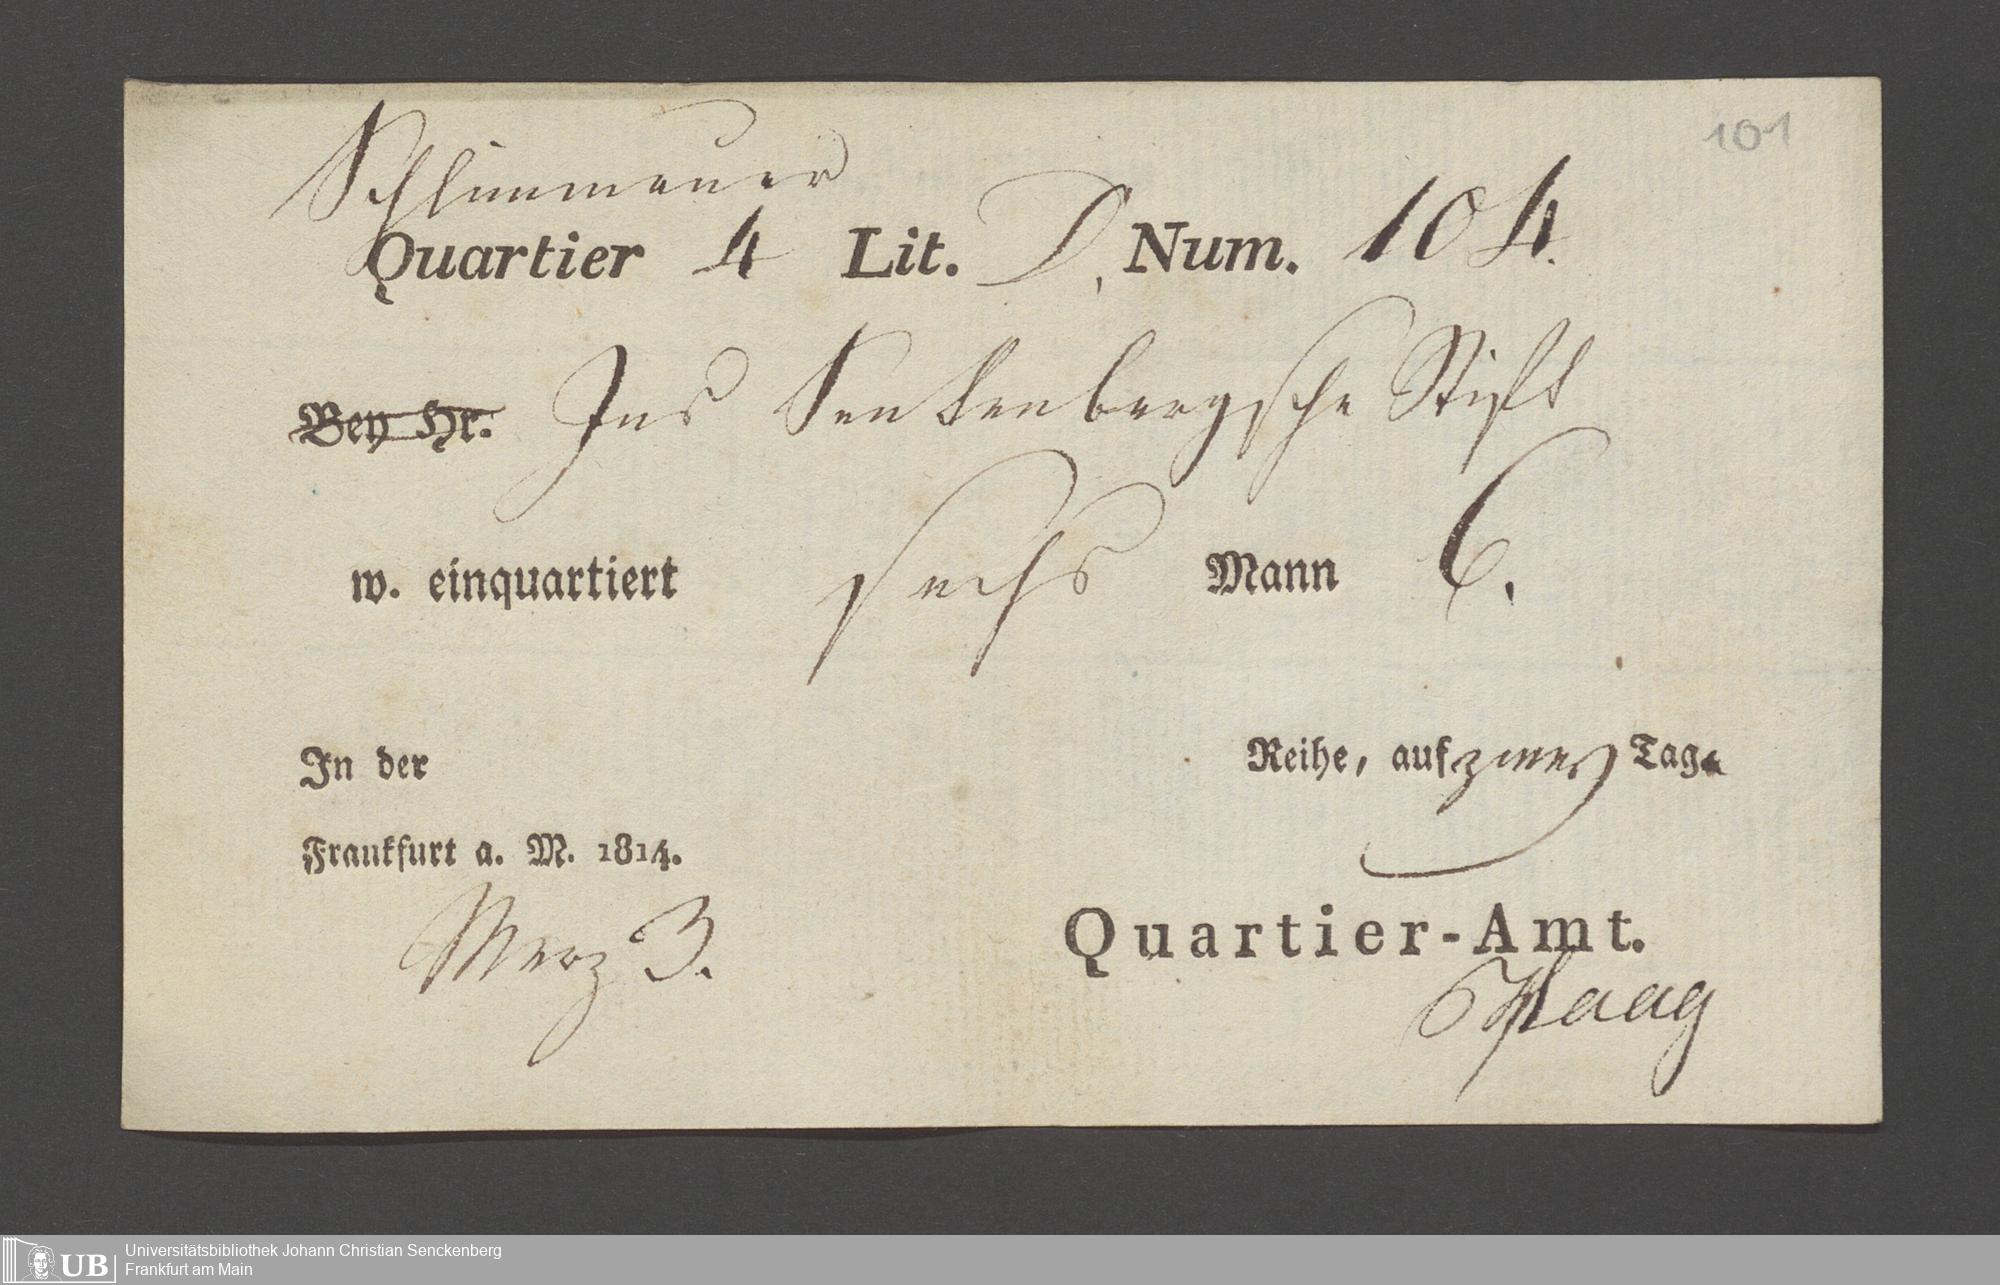 101
Schlimmauer
Quartier 4 Lit. D, Num. 104.
Bey Hr. Ins Senkenbergsche Stift
w. einquartiert sechs Mann 6.
In der Reihe, auf zwey Tage
Frankfurt a. M. 1814.
Merz 3.
Quartier-Amt.
Haag
UB Universitätsbibliothek Johann Christian Senckenberg
Frankfurt am Main